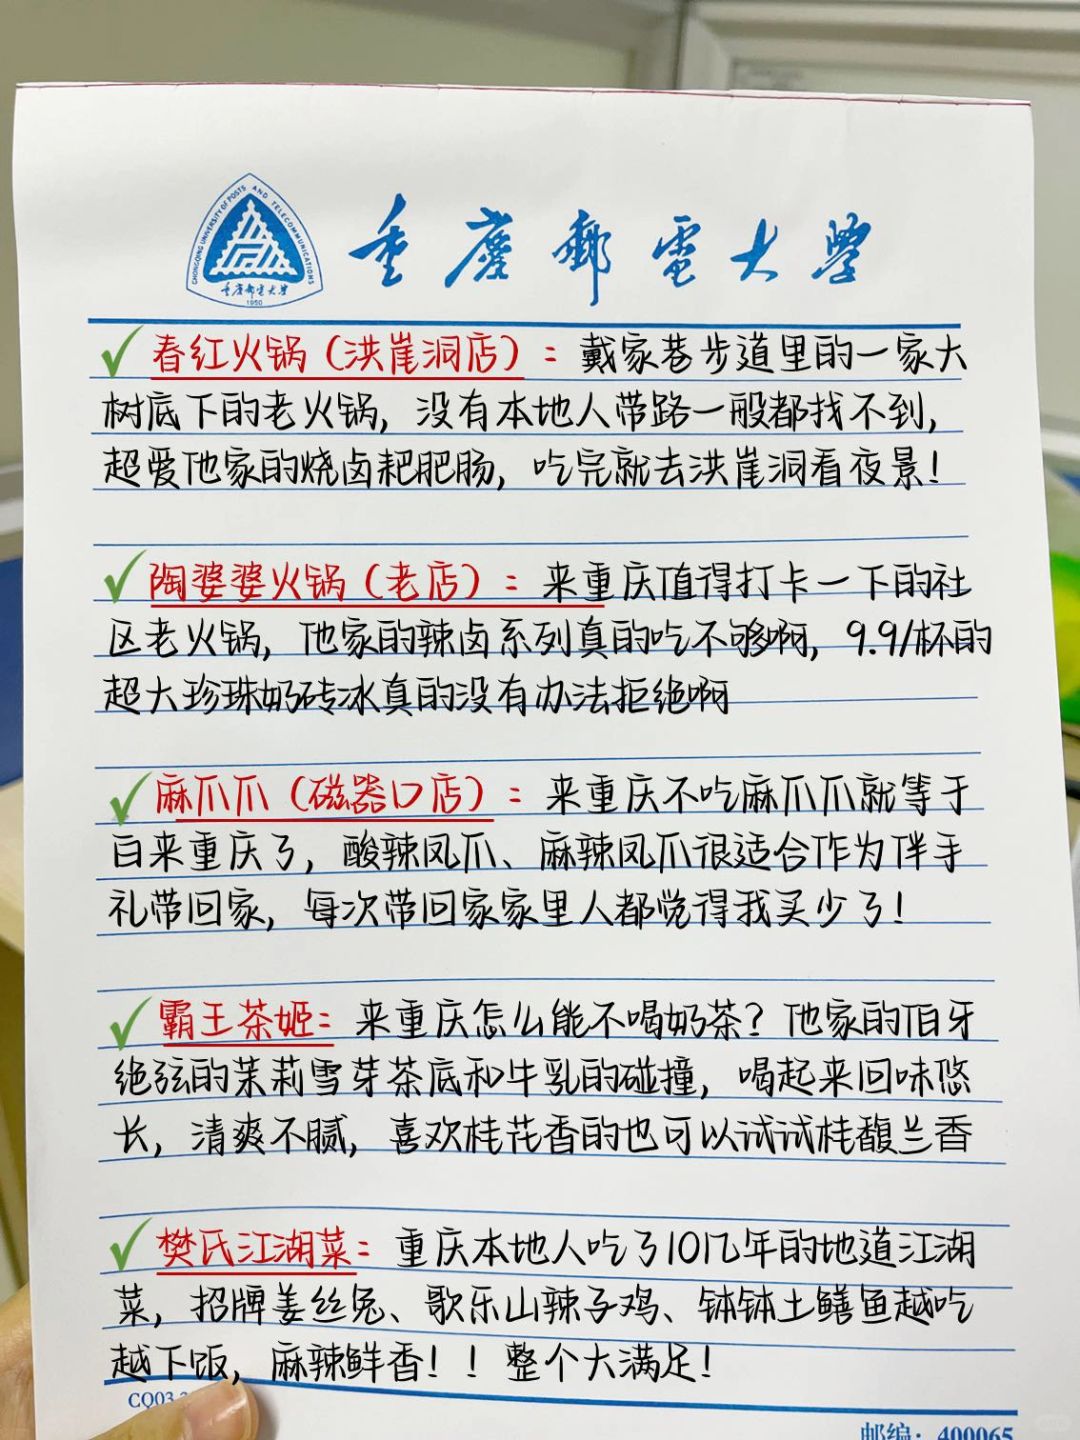 CHONGQING UNIVERSITY OF POSTS AND TELECOMMUNICATIONS
重慶郵電大學
1950
重慶郵電大學
春红火锅（洪崖洞店）：戴家巷步道里的一家大
树底下的老火锅，没有本地人带路一般都找不到，
超爱他家的烧卤耙肥肠，吃完就去洪崖洞看夜景！
陶婆婆火锅（老店）：来重庆值得打卡一下的社
区老火锅，他家的辣卤系列真的吃不够啊，9.9/杯的
超大珍珠奶砖冰真的没有办法拒绝啊
麻爪爪（磁器口店）：来重庆不吃麻爪爪就等于
白来重庆了，酸辣凤爪、麻辣凤爪很适合作为伴手
礼带回家，每次带回家家里人都觉得我买少了！
霸王茶姬：来重庆怎么能不喝奶茶？他家的伯牙
绝弦的茉莉雪芽茶底和牛乳的碰撞，喝起来回味悠
长，清爽不腻，喜欢桂花香的也可以试试桂馥兰香
樊氏江湖菜：重庆本地人吃了10几年的地道江湖
菜，招牌姜丝兔、歌乐山辣子鸡、钵钵土鳝鱼越吃
越下饭，麻辣鲜香！！整个大满足！
CQ03
邮编：400065